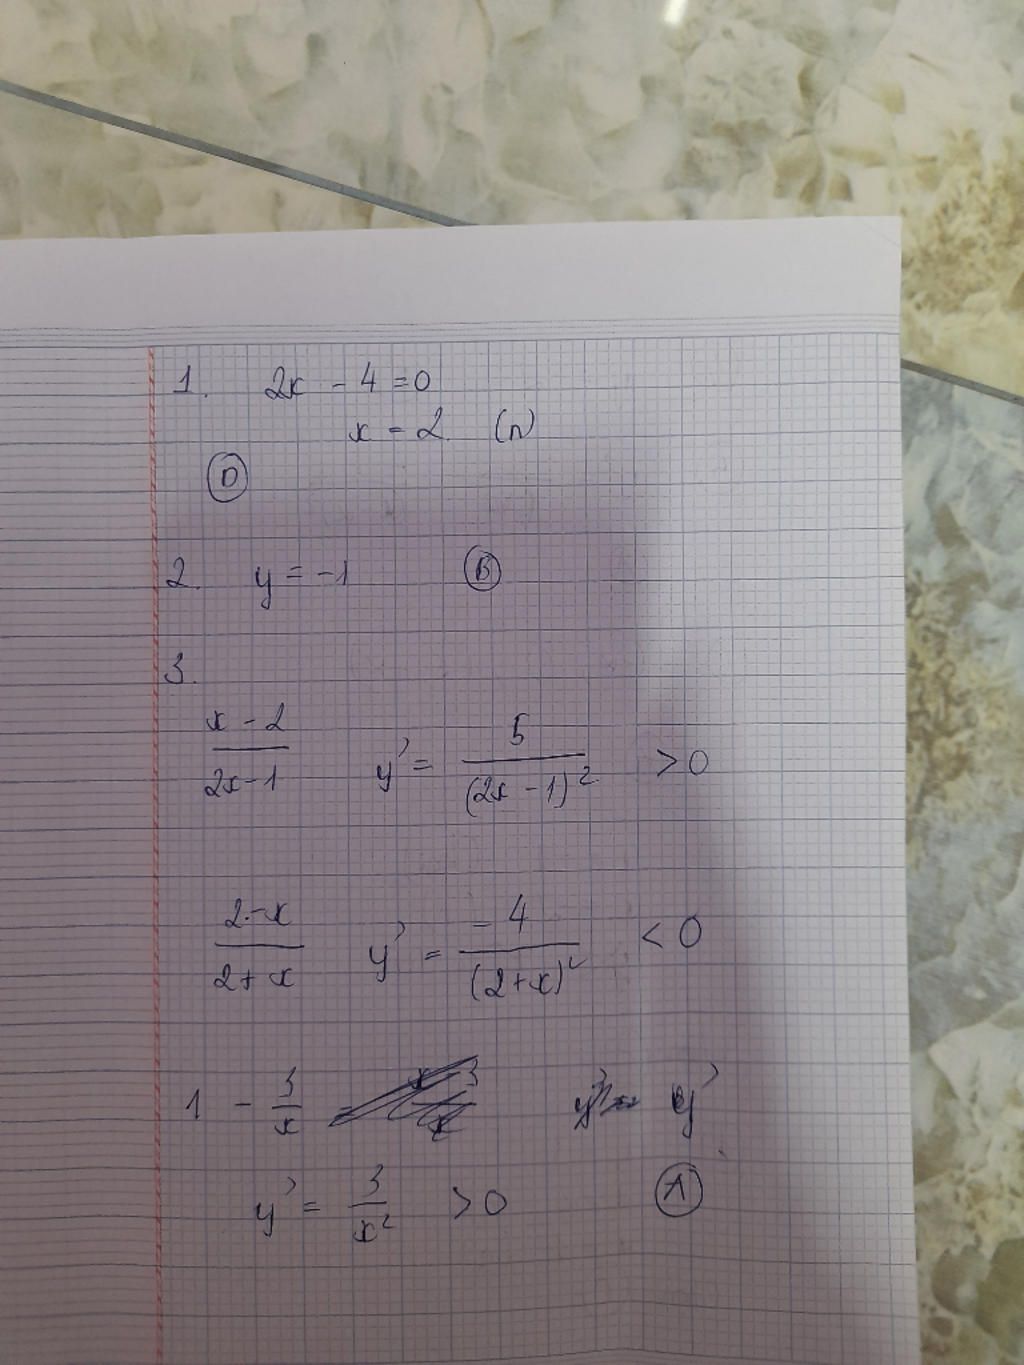 1. 2x - 4 = 0
x = 2 (n)
D
2. y = -1 B
3.
x - 2
2x - 1
y' = 5 / (2x - 1)² > 0
2 - x
2 + x
y' = -4 / (2 + x)² < 0
1 - 3/x = y'
y' = 3/x² > 0 A